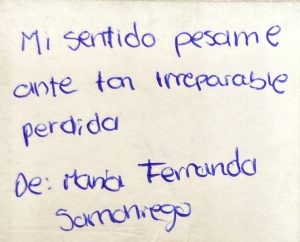 Mi sentido pesame
ante tan irreparable
perdida
De: María Fernanda
Samaniego